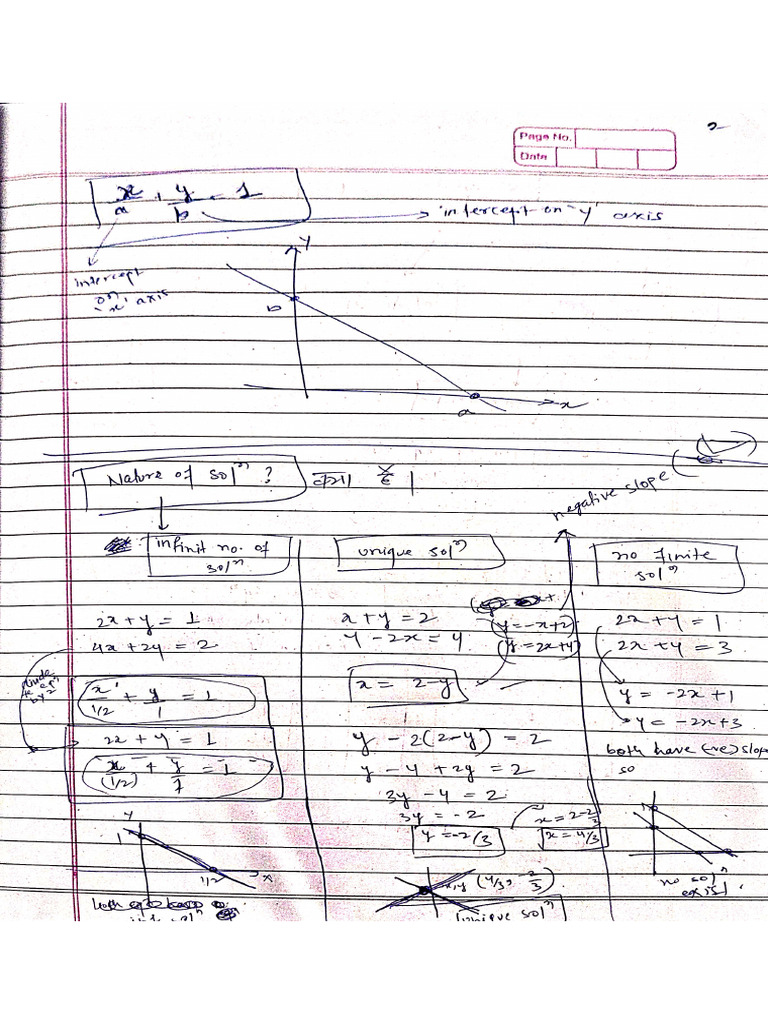 2
Page No.
Date
x/a + y/b = 1
intercept on 'y' axis
intercept
on
'x' axis
y
b
a
x
Nature of solⁿ ?
negative slope
infinit no. of
solⁿ
2x + y = 1
4x + 2y = 2
x/1/2 + y/1 = 1
by 2
2x + y = 1
x/(1/2) + y/1 = 1
y
1
1/2
x
both
unique solⁿ
x + y = 2
y - 2x = 4
(y = -x+2)
(y = 2x+4)
x = 2-y
y - 2(2-y) = 2
y - 4 + 2y = 2
3y - 4 = 2
3y = -2
y = -2/3
x = 2-2/3
x = 4/3
(4/3, -2/3)
unique solⁿ
no finite
solⁿ
2x + y = 1
2x + y = 3
y = -2x + 1
y = -2x + 3
both have (-ve) slope
so
no solⁿ
exist.